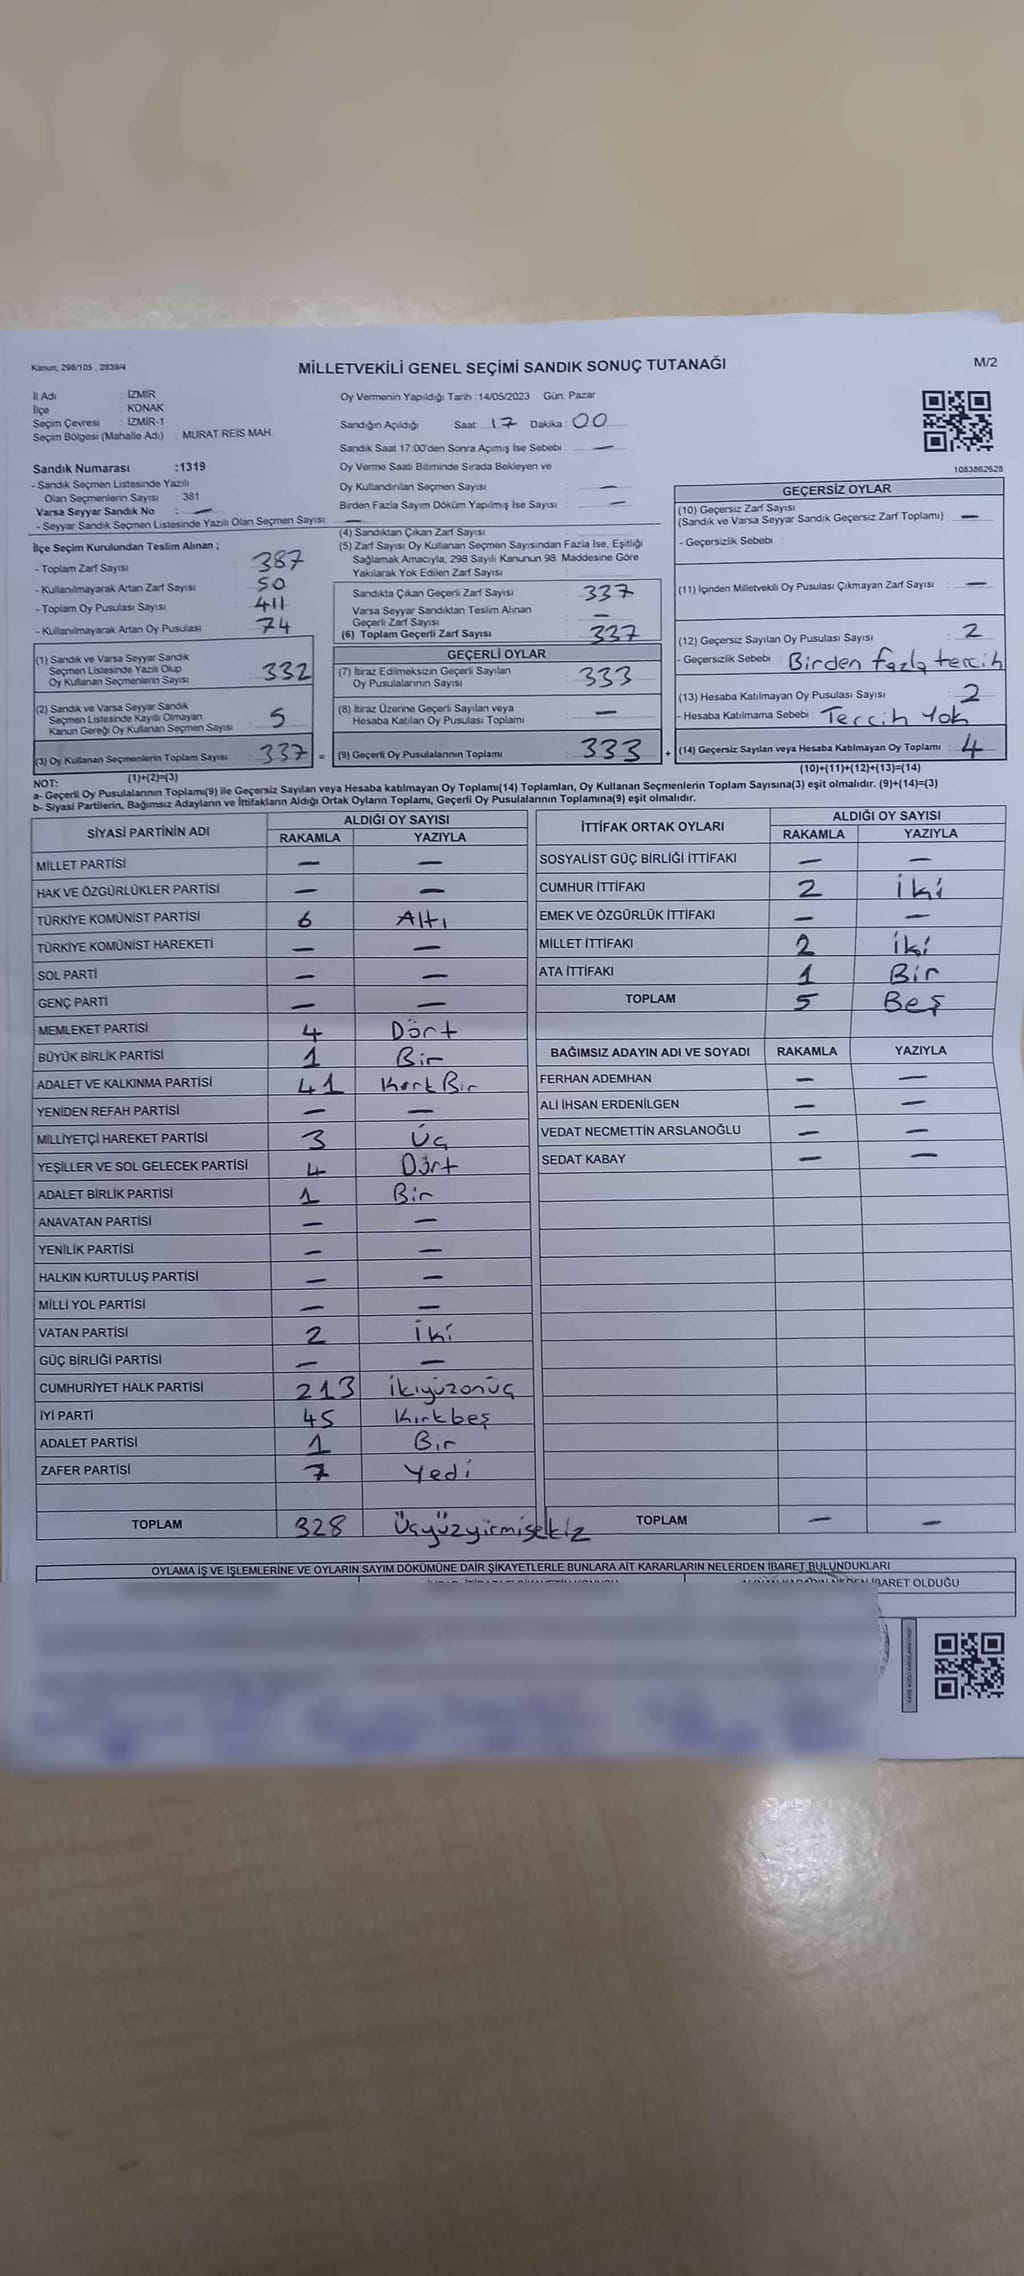 Kanun; 298/105 , 2839/4
MİLLETVEKİLİ GENEL SEÇİMİ SANDIK SONUÇ TUTANAĞI
M/2
İl Adı : İZMİR
İlçe : KONAK
Seçim Çevresi : İZMİR-1
Seçim Bölgesi (Mahalle Adı) : MURAT REİS MAH.
Oy Vermenin Yapıldığı Tarih :14/05/2023 Gün: Pazar
Sandığın Açıldığı Saat: 17 Dakika: 00
Sandık Saat 17:00'den Sonra Açımış İse Sebebi : —
Oy Verme Saati Bitiminde Sırada Bekleyen ve
Oy Kullandırılan Seçmen Sayısı : —
Birden Fazla Sayım Döküm Yapılmış İse Sayısı : —
1083862628
Sandık Numarası :1319
- Sandık Seçmen Listesinde Yazılı
Olan Seçmenlerin Sayısı : 381
Varsa Seyyar Sandık No : —
- Seyyar Sandık Seçmen Listesinde Yazılı Olan Seçmen Sayısı: —
İlçe Seçim Kurulundan Teslim Alınan ;
- Toplam Zarf Sayısı : 387
- Kullanılmayarak Artan Zarf Sayısı : 50
- Toplam Oy Pusulası Sayısı : 411
- Kullanılmayarak Artan Oy Pusulası : 74
(1) Sandık ve Varsa Seyyar Sandık
Seçmen Listesinde Yazılı Olup
Oy Kullanan Seçmenlerin Sayısı : 332
(2) Sandık ve Varsa Seyyar Sandık
Seçmen Listesinde Kayıtlı Olmayan
Kanun Gereği Oy Kullanan Seçmen Sayısı : 5
(3) Oy Kullanan Seçmenlerin Toplam Sayısı : 337 =
(1)+(2)=(3)
(4) Sandıktan Çıkan Zarf Sayısı :
(5) Zarf Sayısı Oy Kullanan Seçmen Sayısından Fazla İse, Eşitliği
Sağlamak Amacıyla; 298 Sayılı Kanunun 98. Maddesine Göre
Yakılarak Yok Edilen Zarf Sayısı :
Sandıkta Çıkan Geçerli Zarf Sayısı : 337
Varsa Seyyar Sandıktan Teslim Alınan
Geçerli Zarf Sayısı : —
(6) Toplam Geçerli Zarf Sayısı : 337
GEÇERLİ OYLAR
(7) İtiraz Edilmeksizin Geçerli Sayılan
Oy Pusulalarının Sayısı : 333
(8) İtiraz Üzerine Geçerli Sayılan veya
Hesaba Katılan Oy Pusulası Toplamı : —
(9) Geçerli Oy Pusulalarının Toplamı : 333 +
GEÇERSİZ OYLAR
(10) Geçersiz Zarf Sayısı
(Sandık ve Varsa Seyyar Sandık Geçersiz Zarf Toplamı) : —
- Geçersizlik Sebebi :
(11) İçinden Milletvekili Oy Pusulası Çıkmayan Zarf Sayısı : —
(12) Geçersiz Sayılan Oy Pusulası Sayısı : 2
- Geçersizlik Sebebi : Birden fazla tercih
(13) Hesaba Katılmayan Oy Pusulası Sayısı : 2
- Hesaba Katılmama Sebebi : Tercih Yok
(14) Geçersiz Sayılan veya Hesaba Katılmayan Oy Toplamı : 4
(10)+(11)+(12)+(13)=(14)
NOT:
a- Geçerli Oy Pusulalarının Toplamı(9) ile Geçersiz Sayılan veya Hesaba katılmayan Oy Toplamı(14) Toplamları, Oy Kullanan Seçmenlerin Toplam Sayısına(3) eşit olmalıdır. (9)+(14)=(3)
b- Siyasi Partilerin, Bağımsız Adayların ve İttifakların Aldığı Ortak Oyların Toplamı, Geçerli Oy Pusulalarının Toplamına(9) eşit olmalıdır.
SİYASİ PARTİNİN ADI ALDIĞI OY SAYISI
RAKAMLA YAZIYLA
MİLLET PARTİSİ — —
HAK VE ÖZGÜRLÜKLER PARTİSİ — —
TÜRKİYE KOMÜNİST PARTİSİ 6 Altı
TÜRKİYE KOMÜNİST HAREKETİ — —
SOL PARTİ — —
GENÇ PARTİ — —
MEMLEKET PARTİSİ 4 Dört
BÜYÜK BİRLİK PARTİSİ 1 Bir
ADALET VE KALKINMA PARTİSİ 41 Kırk Bir
YENİDEN REFAH PARTİSİ — —
MİLLİYETÇİ HAREKET PARTİSİ 3 Üç
YEŞİLLER VE SOL GELECEK PARTİSİ 4 Dört
ADALET BİRLİK PARTİSİ 1 Bir
ANAVATAN PARTİSİ — —
YENİLİK PARTİSİ — —
HALKIN KURTULUŞ PARTİSİ — —
MİLLİ YOL PARTİSİ — —
VATAN PARTİSİ 2 İki
GÜÇ BİRLİĞİ PARTİSİ — —
CUMHURİYET HALK PARTİSİ 213 İkiyüzonüç
İYİ PARTİ 45 Kırkbeş
ADALET PARTİSİ 1 Bir
ZAFER PARTİSİ 7 Yedi
TOPLAM 328 Üçyüzyirmisekiz
İTTİFAK ORTAK OYLARI ALDIĞI OY SAYISI
RAKAMLA YAZIYLA
SOSYALİST GÜÇ BİRLİĞİ İTTİFAKI — —
CUMHUR İTTİFAKI 2 İki
EMEK VE ÖZGÜRLÜK İTTİFAKI — —
MİLLET İTTİFAKI 2 İki
ATA İTTİFAKI 1 Bir
TOPLAM 5 Beş
BAĞIMSIZ ADAYIN ADI VE SOYADI RAKAMLA YAZIYLA
FERHAN ADEMHAN — —
ALİ İHSAN ERDENİLGEN — —
VEDAT NECMETTİN ARSLANOĞLU — —
SEDAT KABAY — —
TOPLAM — —
OYLAMA İŞ VE İŞLEMLERİNE VE OYLARIN SAYIM DÖKÜMÜNE DAİR ŞİKAYETLERLE BUNLARA AİT KARARLARIN NELERDEN İBARET BULUNDUKLARI
İBARET OLDUĞU